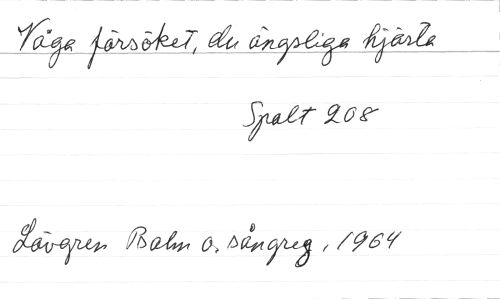 Våga försöket, du ängsliga hjärta
Spalt 208
Lövgren Psalm o. sångreg, 1964